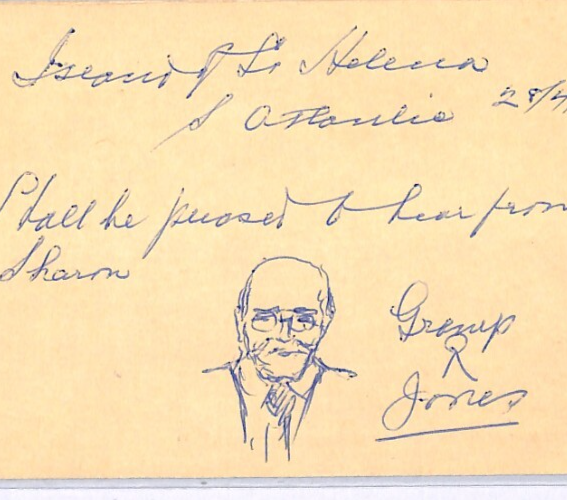 Island of St Helena
S Atlantic 28/4
Shall be pleased to hear from
Sharon
Gramp
R
Jones